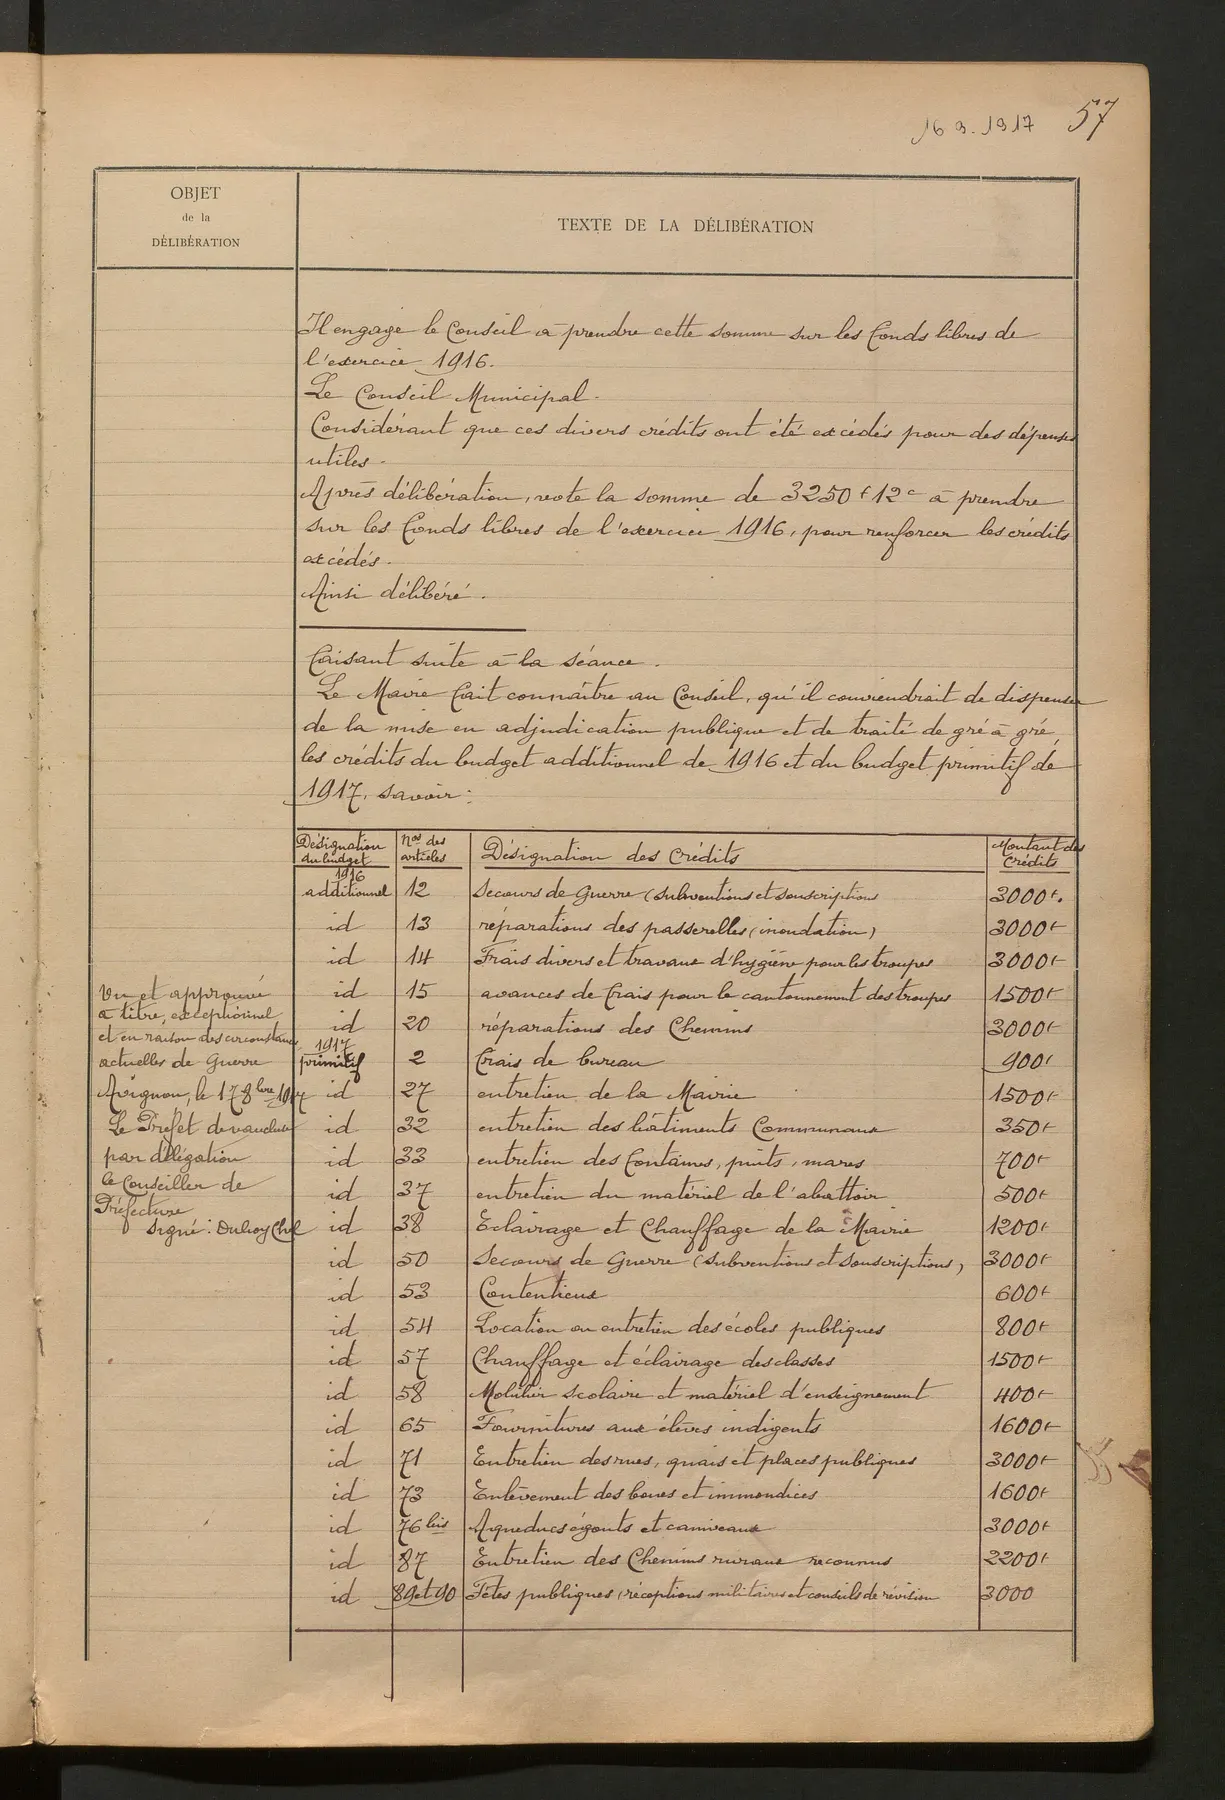 16 9. 1917 57
OBJET
de la
DÉLIBÉRATION
TEXTE DE LA DÉLIBÉRATION
Il engage le Conseil à prendre cette somme sur les fonds libres de
l'exercice 1916.
Le Conseil Municipal.
Considérant que ces divers crédits ont été excédés pour des dépenses
utiles.
Après délibération, vote la somme de 3250f 12c à prendre
sur les fonds libres de l'exercice 1916, pour renforcer les crédits
excédés.
Ainsi délibéré.
Faisant suite à la séance.
Le Maire fait connaître au Conseil, qu'il conviendrait de dispenser
de la mise en adjudication publique et de traité de gré à gré
les crédits du budget additionnel de 1916 et du budget primitif de
1917, savoir:
Désignation du budget | Nos des articles | Désignation des Crédits | Montant des Crédits
1916
additionnel 12 Secours de Guerre (subventions et souscriptions 3000f.
id 13 réparations des passerelles (inondation) 3000f
id 14 Frais divers et travaux d'hygiène pour les troupes 3000f
id 15 avances de frais pour le cantonnement des troupes 1500f
id 20 réparations des Chemins 3000f
1917
primitif 2 frais de bureau 900f
id 27 entretien de la Mairie 1500f
id 32 entretien des bâtiments Communaux 350f
id 33 entretien des fontaines, puits, mares 700f
id 37 entretien du matériel de l'abattoir 500f
id 38 Eclairage et Chauffage de la Mairie 1200f
id 50 Secours de Guerre (subventions et souscriptions) 3000f
id 53 Contentieux 600f
id 54 Location ou entretien des écoles publiques 800f
id 57 Chauffage et éclairage des classes 1500f
id 58 Mobilier scolaire et matériel d'enseignement 400f
id 65 Fournitures aux élèves indigents 1600f
id 71 Entretien des rues, quais et places publiques 3000f
id 73 Enlèvement des boues et immondices 1600f
id 76 bis Aqueducs égouts et caniveaux 3000f
id 87 Entretien des Chemins ruraux reconnus 2200f
id 89 et 90 Fêtes publiques, réceptions militaires et conseils de révision 3000
Vu et approuvé
à titre, exceptionnel
et en raison des circonstances
actuelles de Guerre
Avignon, le 17 8bre 1917
Le Préfet de vaucluse
par délégation
le Conseiller de
Préfecture
Signé: